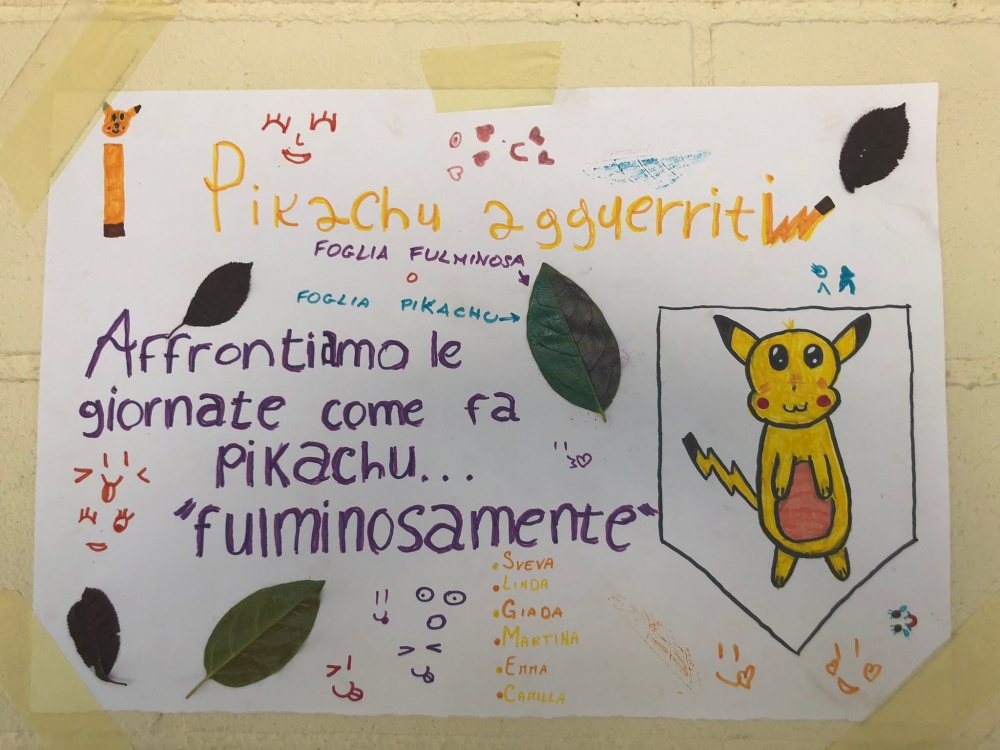 Pikachu agguerriti
FOGLIA FULMINOSA
O
FOGLIA PIKACHU→
Affrontiamo le
giornate come fa
pikachu...
"fulminosamente"
• SVEVA
• LINDA
• GIADA
• MARTINA
• EMMA
• CAMILLA